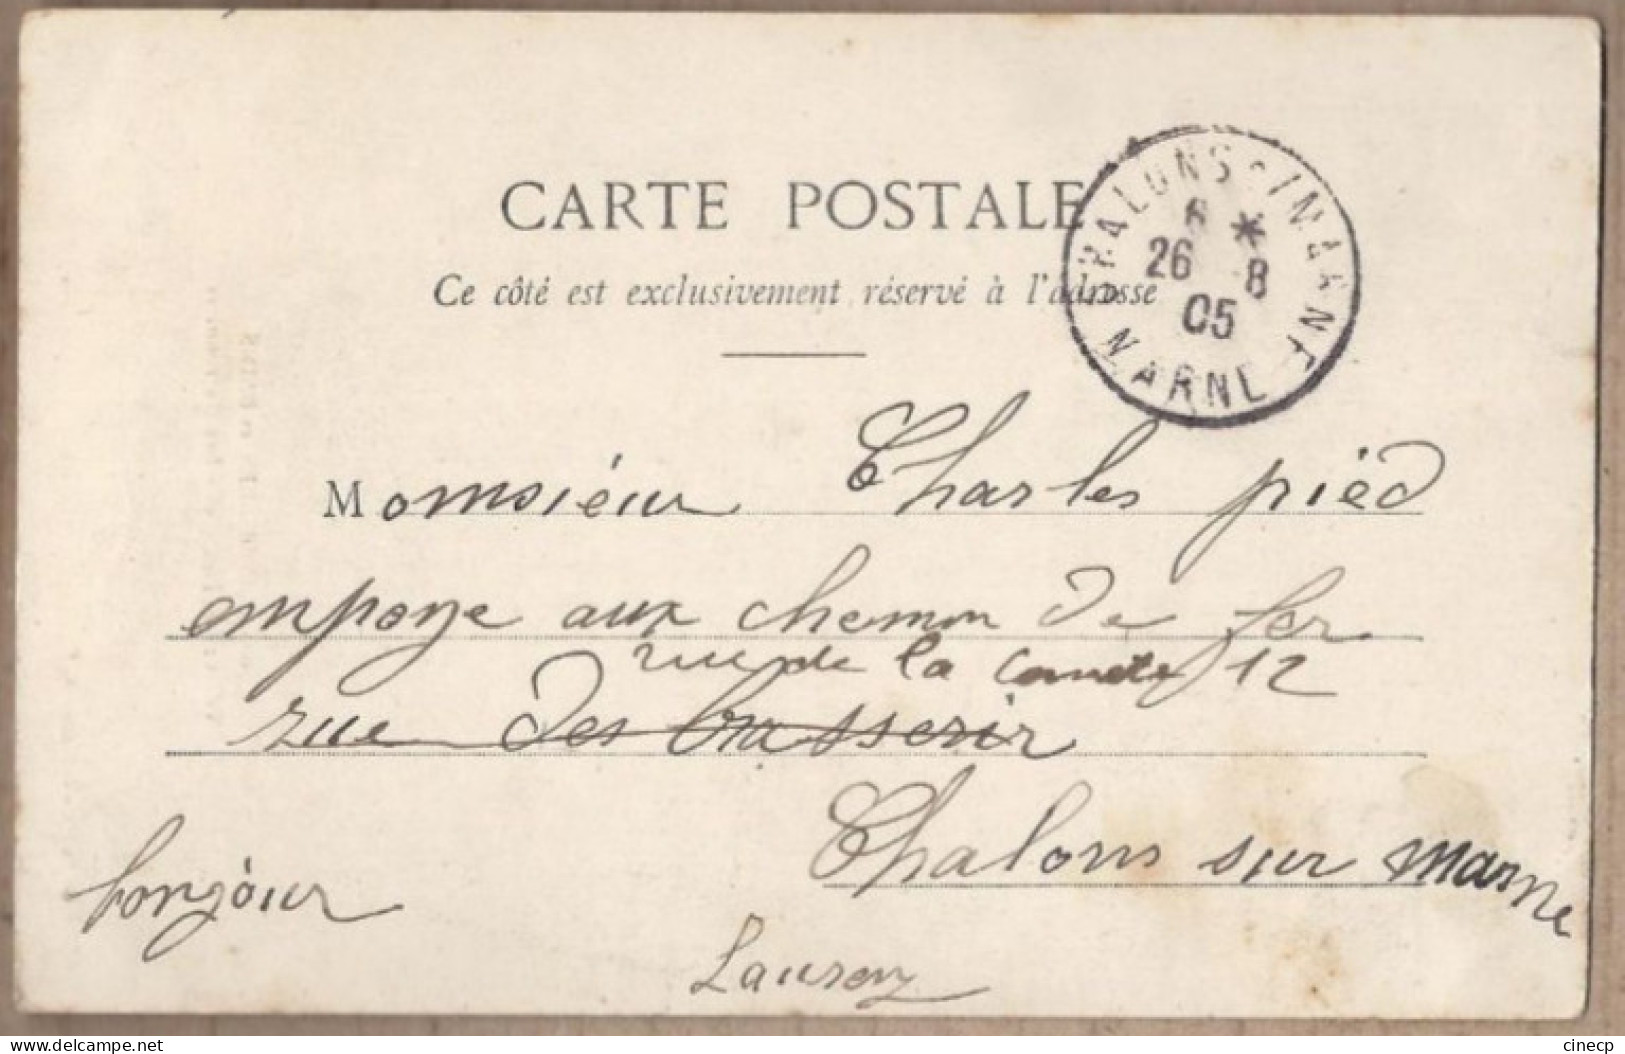 CARTE POSTALE
Ce côté est exclusivement réservé à l'adresse
CHALONS S/MARNE
6 * 
26 8
05
MARNE
Momsiéur Charles piëd
empoye aux chemin de fer
rue de la Comete 12
rue des brasserir
Chalons sur Marne
bonjour
Laurenz
delcampe.net
cinecp